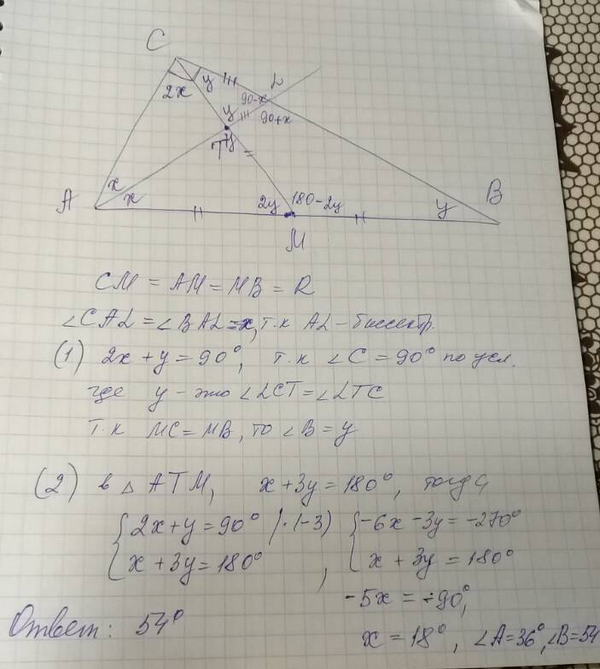 C
2x
y
L
90-x
y
90+x
T
y
A
x
x
2y
180-2y
y
B
M
CM = AM = MB = R
∠CAL = ∠BAL = x, т.к AL - биссектр.
(1) 2x + y = 90°, т.к ∠C = 90° по усл.
где y - это ∠LCT = ∠LTC
т.к MC = MB, то ∠B = y
(2) в △ATM, x + 3y = 180°, тогда
{2x + y = 90° | · (-3) {-6x - 3y = -270°
{x + 3y = 180° , {x + 3y = 180°
-5x = -90°,
Ответ: 54° x = 18°, ∠A = 36°, ∠B = 54